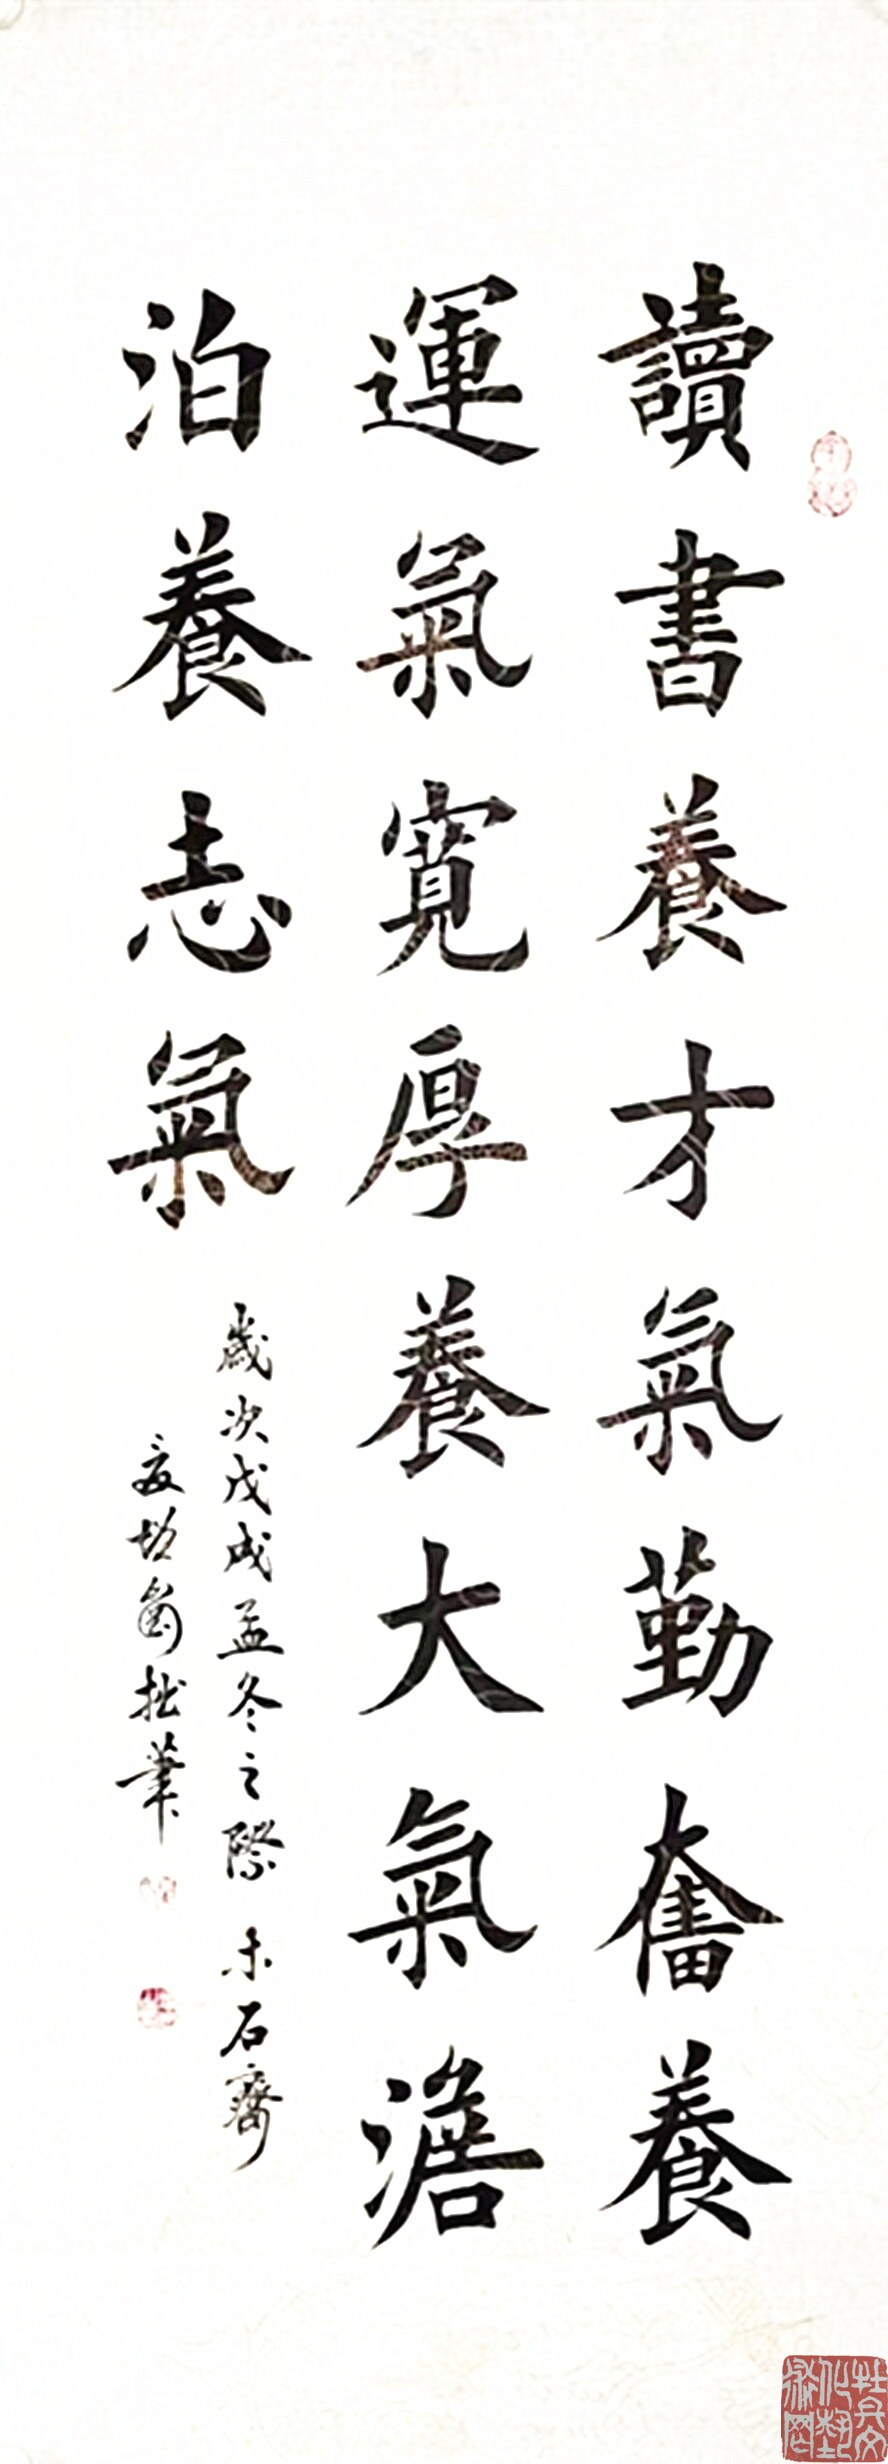 讀書養才氣勤奮養
運氣寬厚養大氣澹
泊養志氣
歲次戊戌孟冬之際 木石齋
拙筆